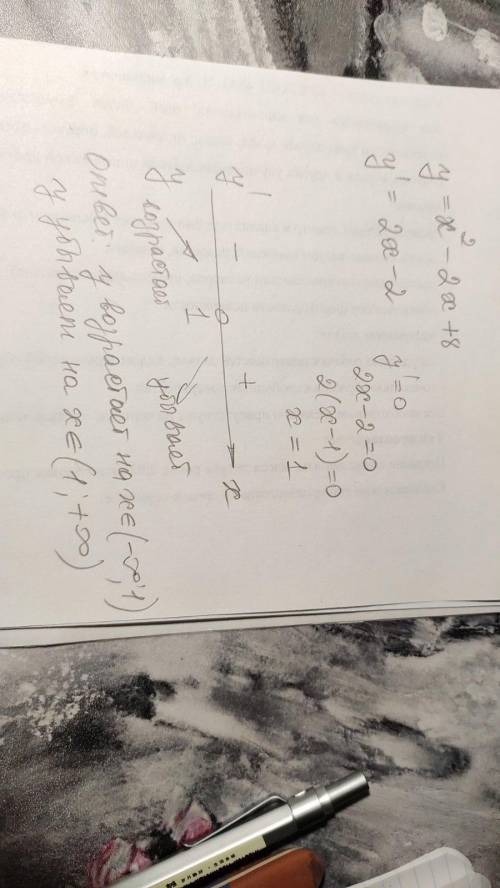 y = x² - 2x + 8
y' = 2x - 2
y' = 0
2x - 2 = 0
2(x - 1) = 0
x = 1
y' - + x
1
y возрастает убывает
ответ: y возрастает на x∈(-∞; 1)
y убывает на x∈(1; +∞)